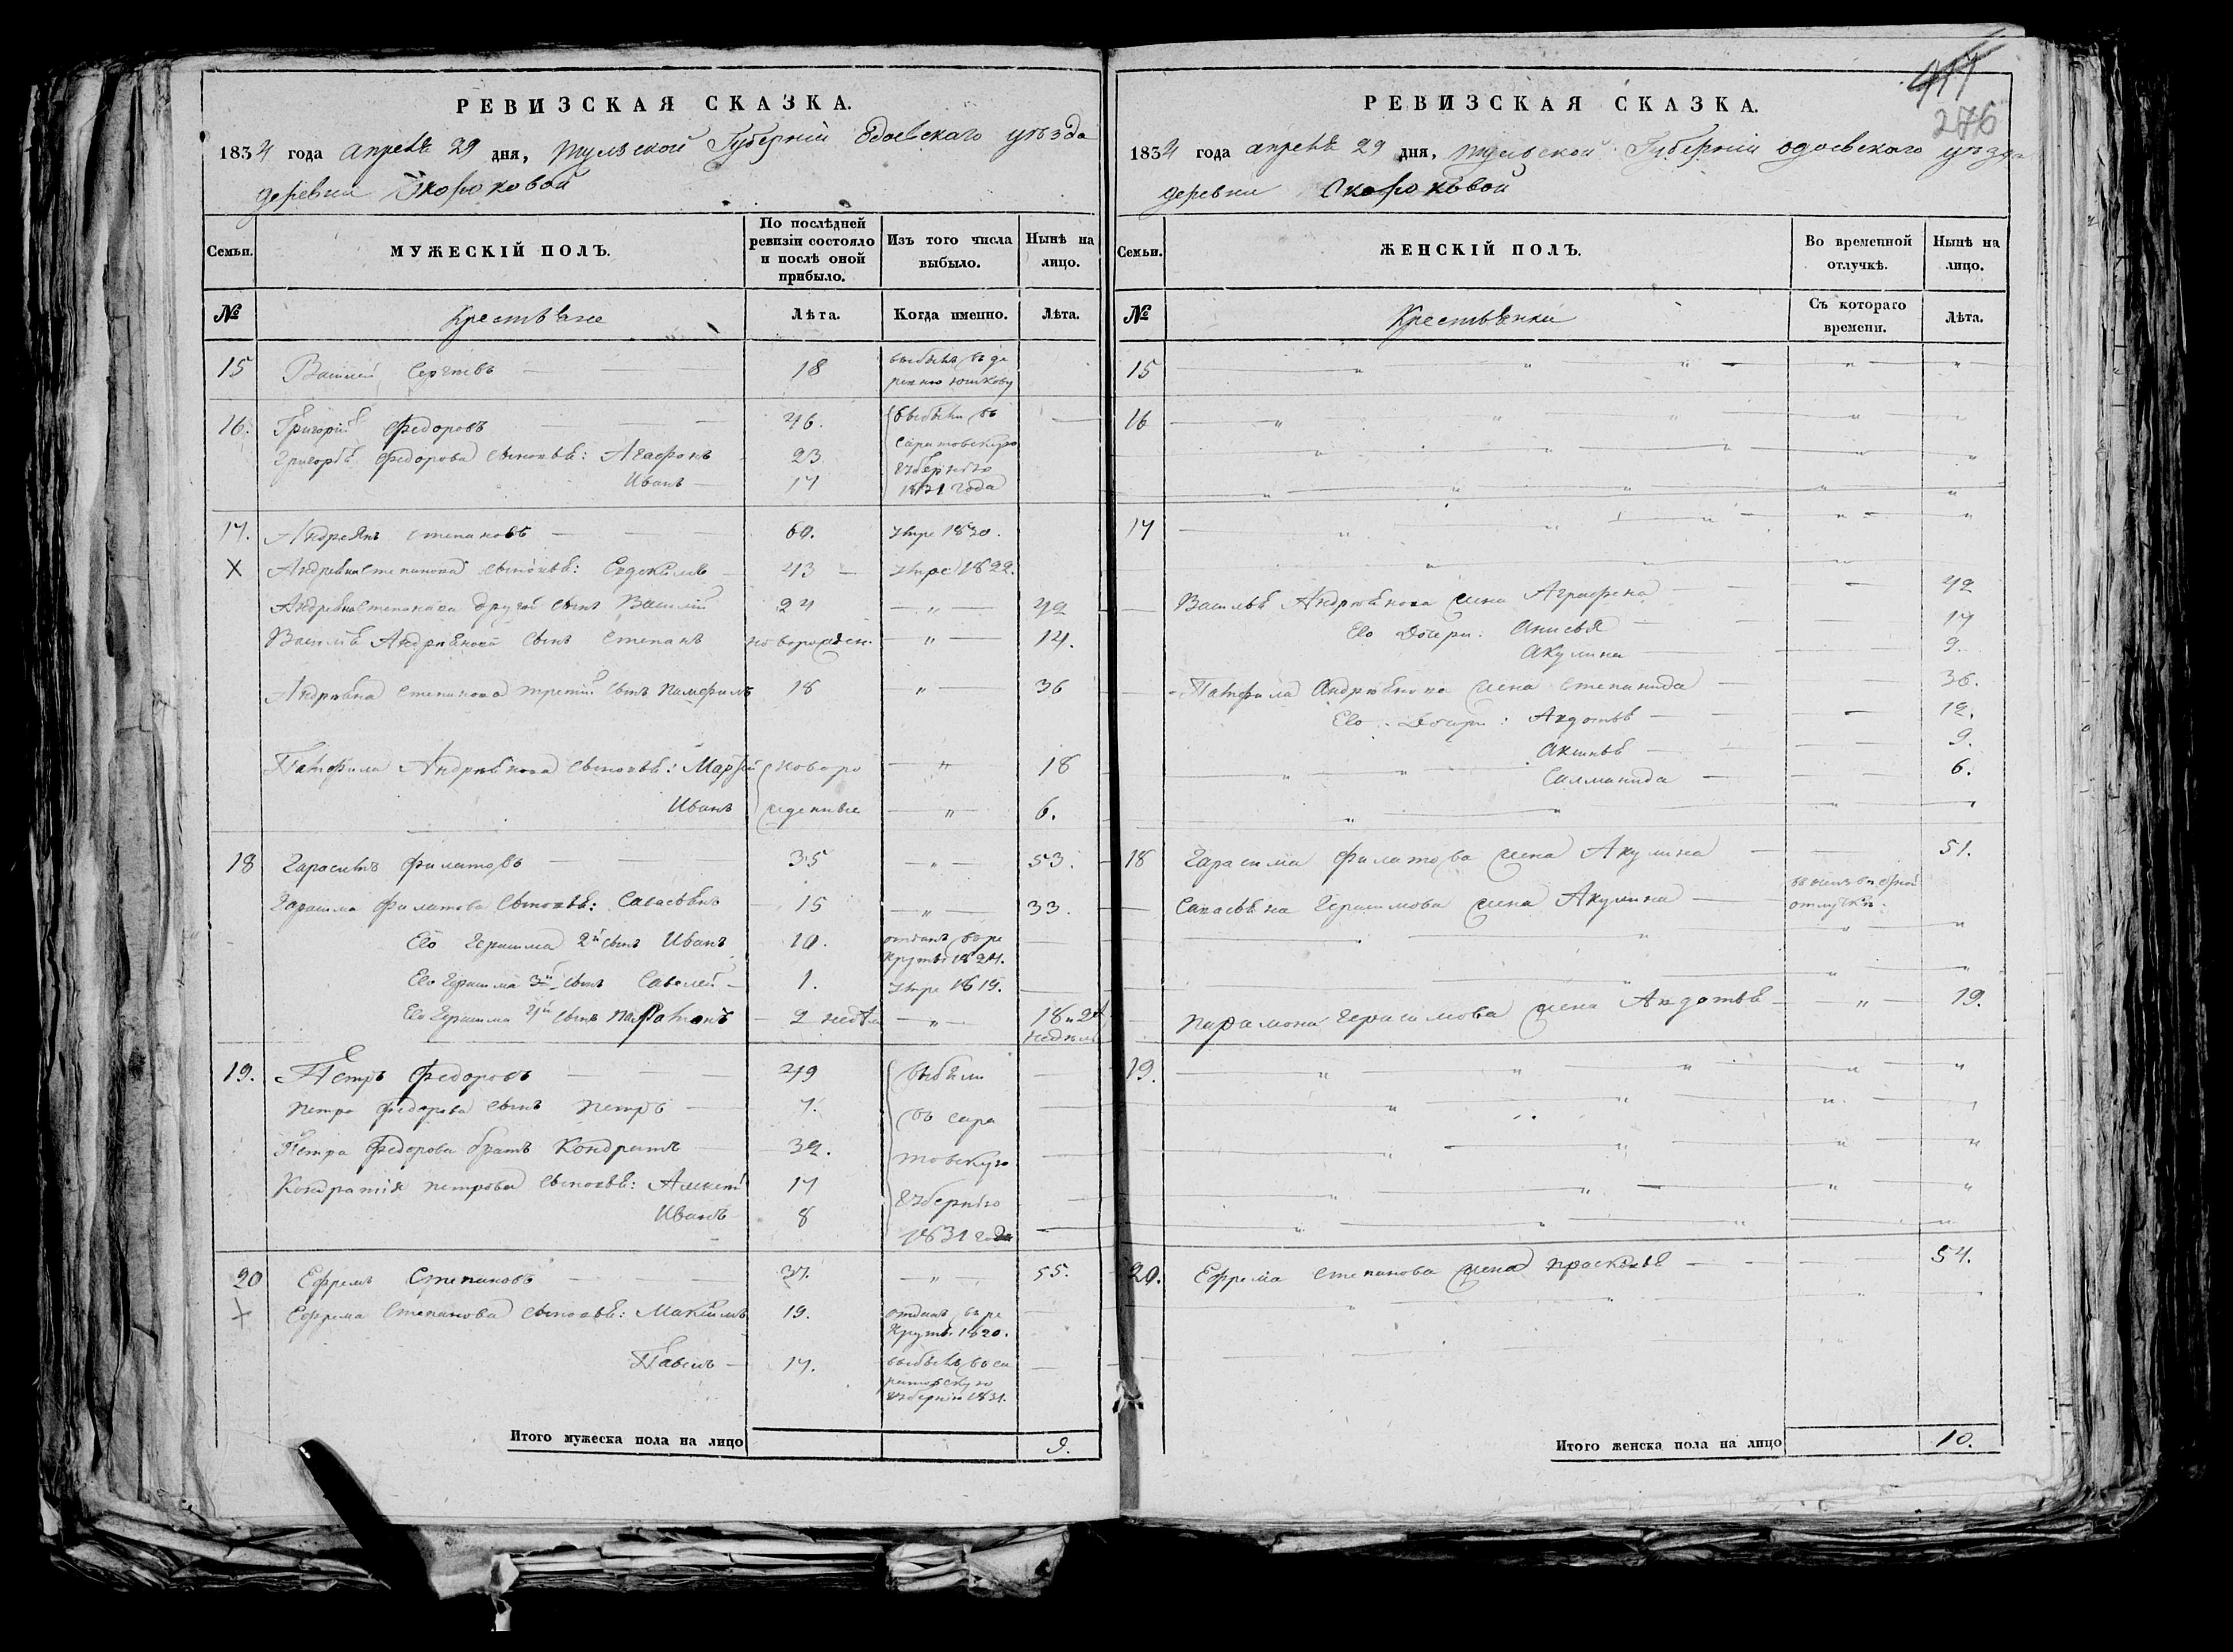 РЕВИЗСКАЯ СКАЗКА.
1834 года апреля 29 дня, Тульской Губернии Одоевскаго уезда
деревни Скороковой
Семьи.
МУЖЕСКІЙ ПОЛЪ.
По послѣдней ревизіи состояло и послѣ оной прибыло.
Изъ того числа выбыло.
Нынѣ на лицо.
№
Крестьяне
Лѣта.
Когда именно.
Лѣта.
15 Василий Сергѣевъ 18 выбылъ въ де
ревню Юшкову
16. Григорій Федоровъ 46. выбыли въ
саратовскую
Григорья Федорова сыновья: Агафонъ 23 губернію
Иванъ 17 1831 года
17. Андреянъ Степановъ 60. умре 1830.
X Андреяна Степанова сыновья: Евдокимъ 23 умре 1822.
Андреяна Степанова другой сынъ Василий 24 " 42
Василья Андреянова сынъ Степанъ новорожден. " 14.
Андреяна Степанова третий сынъ Панфилъ 18 " 36
Панфила Андреянова сыновья: новоро " 18
Иванъ жденные " 6.
18 Гарасимъ Филатовъ 35 " 53.
Гарасима Филатова сыновья: Савастьянъ 15 " 33.
Его Герасима 2й сынъ Иванъ 10. отданъ въ ре
круты 1824.
Его Герасима 3й сынъ Савелей 1. умре 1819.
Его Герасима 4й сынъ Парамонъ 2 недѣли " 18 и 2
недѣли
19. Петръ Федоровъ 49 выбыли
Петра Федорова сынъ Петръ 7. въ сара
Петра Федорова братъ Кондратъ 32. товскую
Кондратія Петрова сыновья: Алексей 17 губернію
Иванъ 8 1831 года
20 Ефремъ Степановъ 37. " 55.
X Ефрема Степанова сыновья: Максимъ 19. отданъ въ ре
круты 1820.
Павелъ 17. выбылъ въ са
ратовскую
губернію 1831.
Итого мужеска пола на лицо 9.
417
276
РЕВИЗСКАЯ СКАЗКА.
1834 года апреля 29 дня, Тульской Губернии Одоевскаго уезда
деревни Скороковой
Семьи.
ЖЕНСКІЙ ПОЛЪ.
Во временной отлучкѣ.
Нынѣ на лицо.
№
Крестьянки
Съ котораго времени.
Лѣта.
15
16
17
Василья Андреянова жена Аграфена 42
Его дочери: Анисья 17
Акулина 9.
Панфила Андреянова жена Степанида 36.
Его дочери: Авдотья 12.
Аксинья 9.
Саламанида 6.
18 Гарасима Филатова жена Акулина 51.
Савастьяна Герасимова жена Акулина отлучкѣ.
Парамона Герасимова жена Авдотья " 19.
19.
20. Ефрема Степанова жена Прасковья 54.
Итого женска пола на лицо 10.